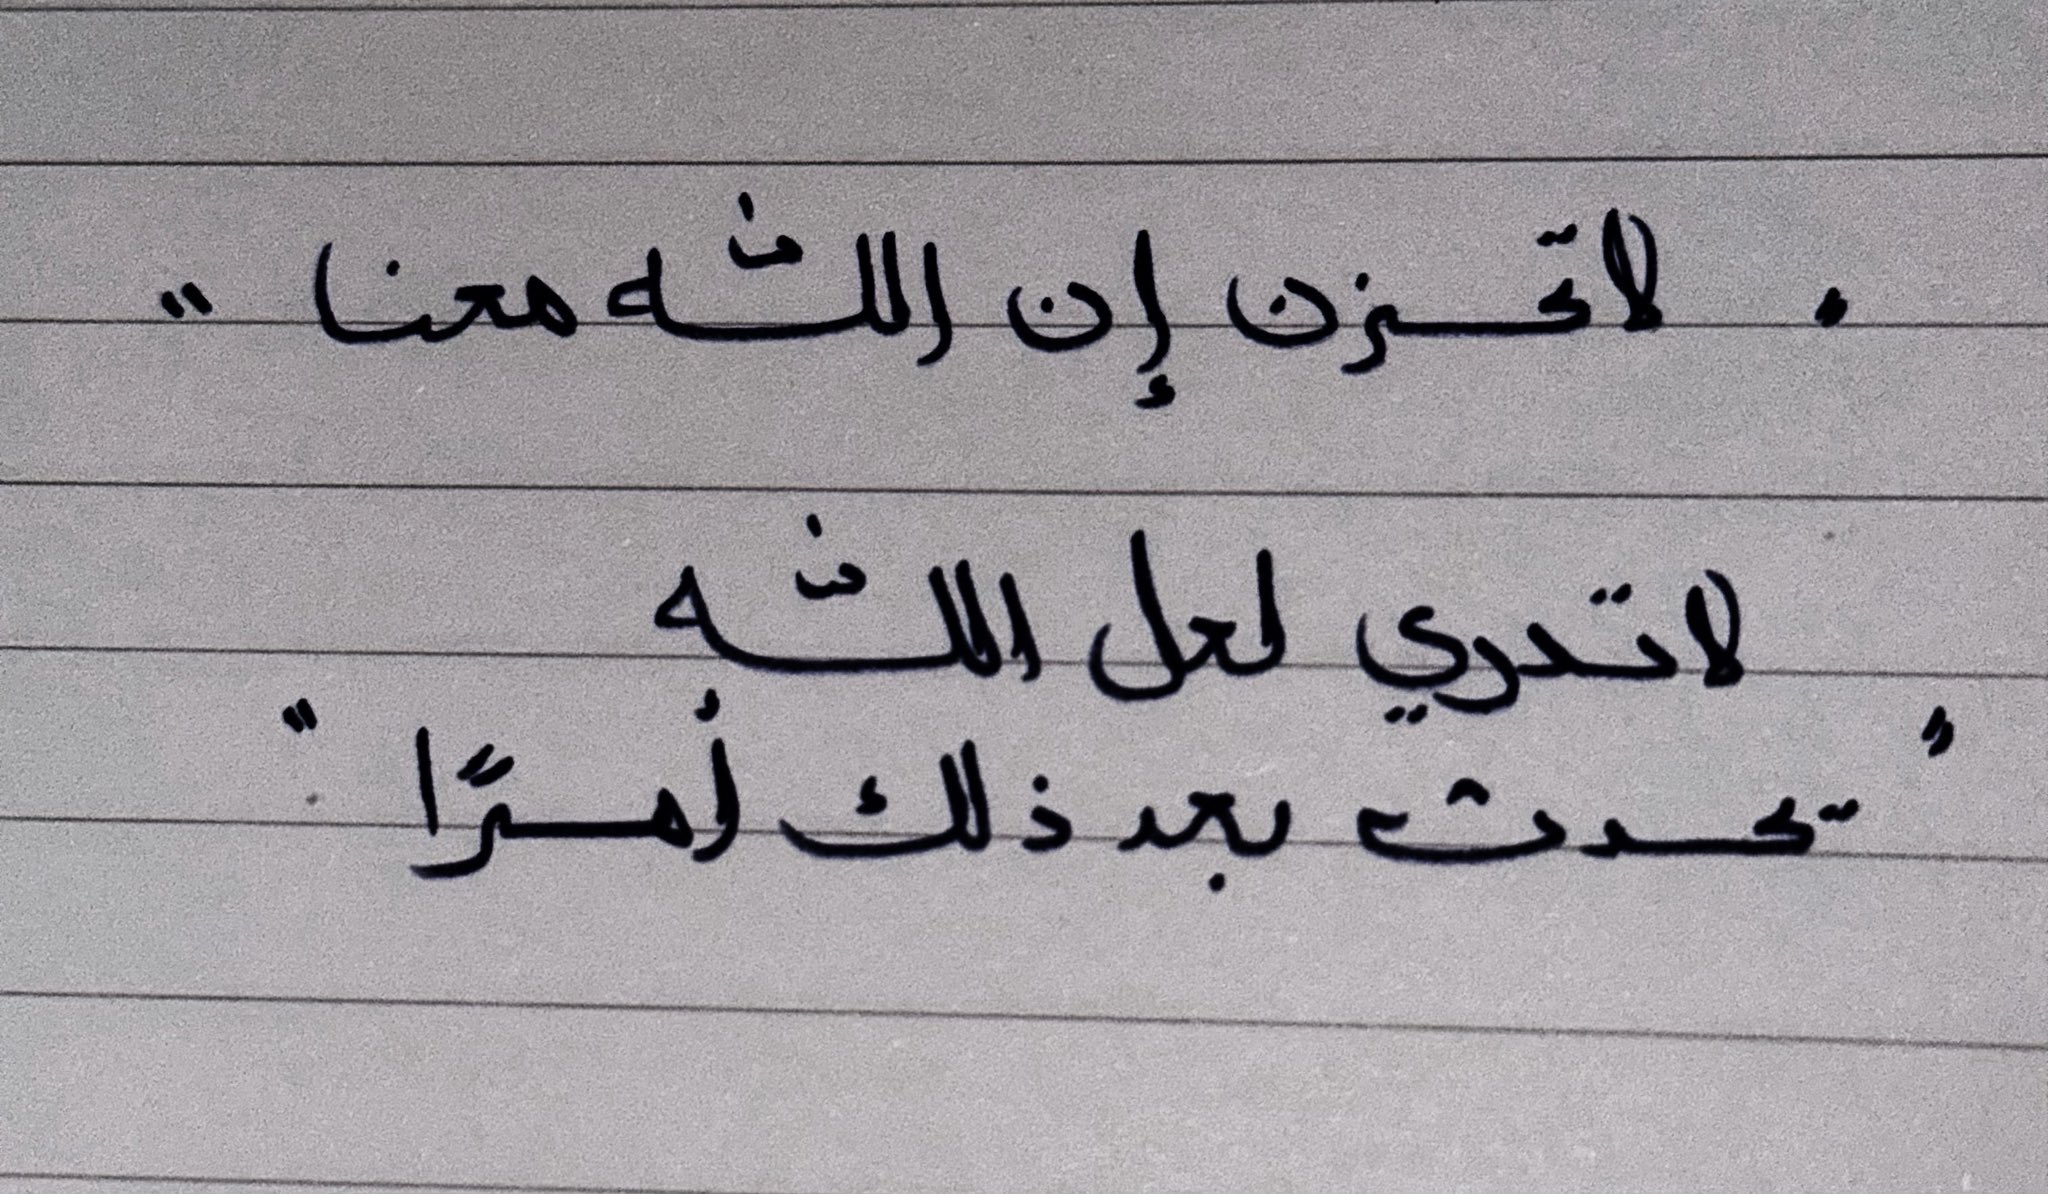 " لا تحزن إن اللّٰه معنا "
لا تدري لعل اللّٰه
" تحدث بعد ذلك أمرًا "